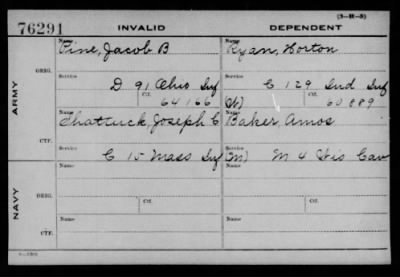 (3-H-5)
76291 INVALID DEPENDENT
Name Name
Pine, Jacob B Ryan, Horton
ORIG.
Service Service
D 91 Ohio Inf C 129 Ind Inf
Ctf. Ctf.
64166 (W) 60889
ARMY
Name Name
Shattuck, Joseph C Baker, Amos
CTF.
Service Service
C 15 Mass Inf (M) M 4 Wis Cav
Name Ctf. Name Ctf.
ORIG.
NAVY
Name Name
CTF.